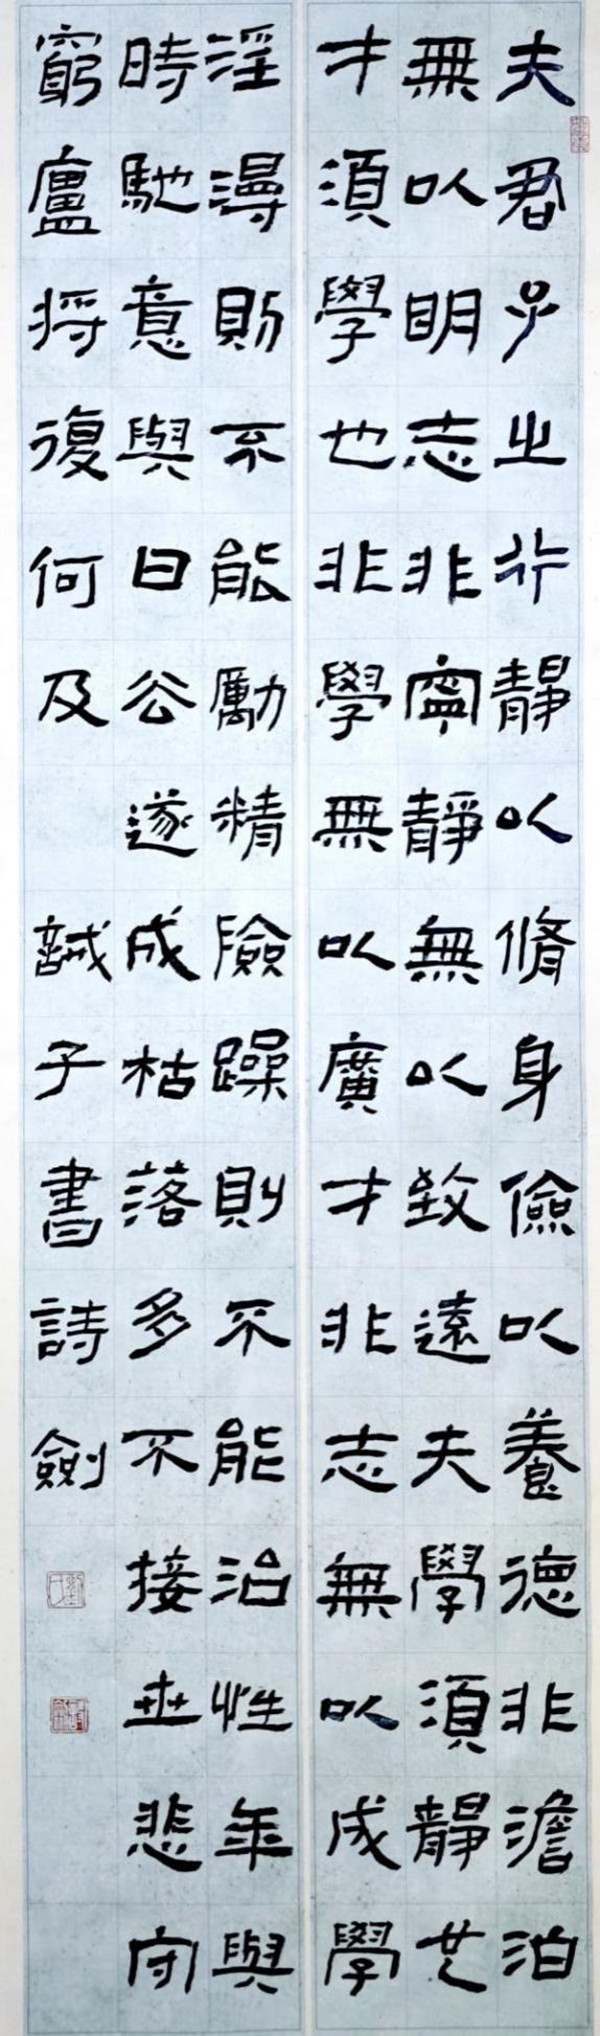 夫君子之行靜以脩身儉以養德非澹泊
無以明志非寧靜無以致遠夫學須靜也
才須學也非學無以廣才非志無以成學
淫漫則不能勵精險躁則不能治性年與
時馳意與日公遂成枯落多不接世悲守
窮廬將復何及 誡子書詩劍